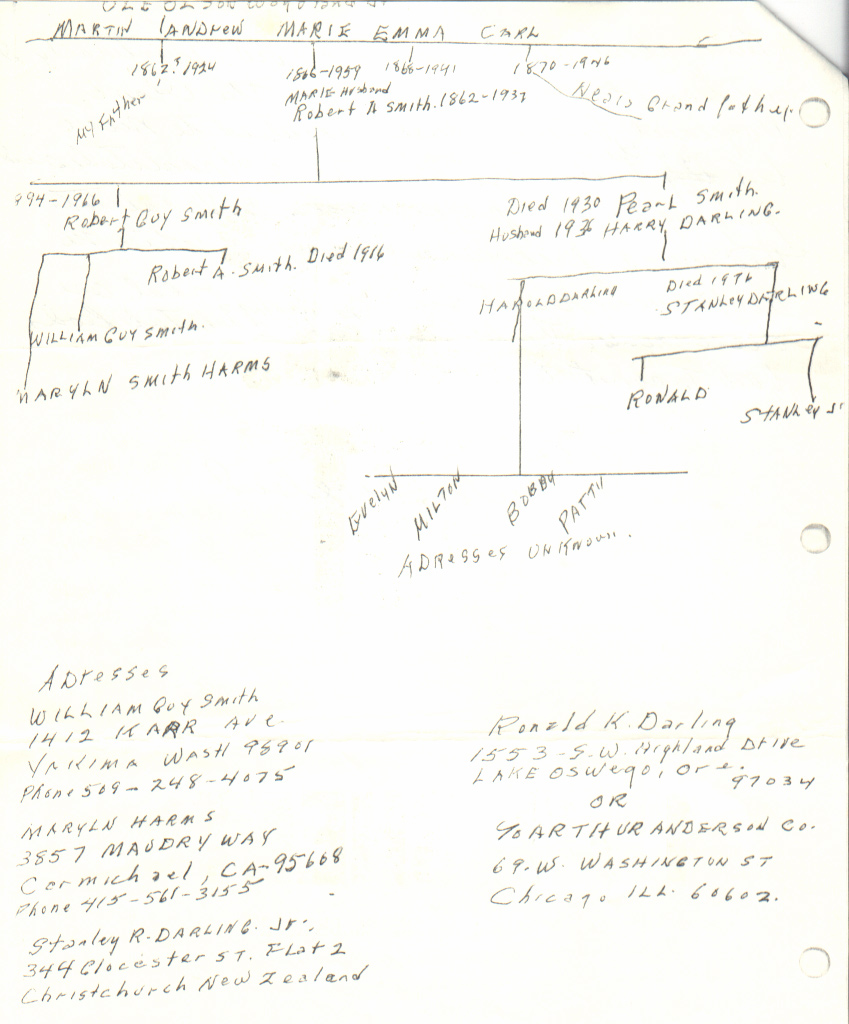 OLE OLSON
MARTIN ANDREW MARIE EMMA CARL
1862? 1924 1866-1959 1868-1941 1870-1946
MARIE Husband
My Father Robert A Smith. 1862-1937 Neals Grandfather
94-1966
Robert Guy Smith
Died 1930 Pearl Smith.
Husband 1936 HARRY DARLING.
Robert A. Smith. Died 1966
HAROLD DARLING Died 1976
STANLEY DARLING
WILLIAM GUY Smith.
MARYLN SMITH HARMS
RONALD
STANLEY Jr
EVELYN MILTON BOBBY PATTI
ADRESSES UNKNOWN.
ADresses
WILLIAM GUY Smith
1412 KARR AVE.
YAKIMA WASH 98901
Phone 509-248-4075
MARYLN HARMS
3857 MAUDRY WAY
Carmichael, CA-95608
Phone 415-561-3155
Stanley R. DARLING. Jr.,
344 Glocester ST. Flat 2
Christchurch New Zealand
Ronald K. Darling
1553-S.W. Highland Drive
LAKE OSWEGO, Ore.
97034
OR
% ARTHUR ANDERSON Co.
69. W. WASHINGTON ST
Chicago ILL. 60602.